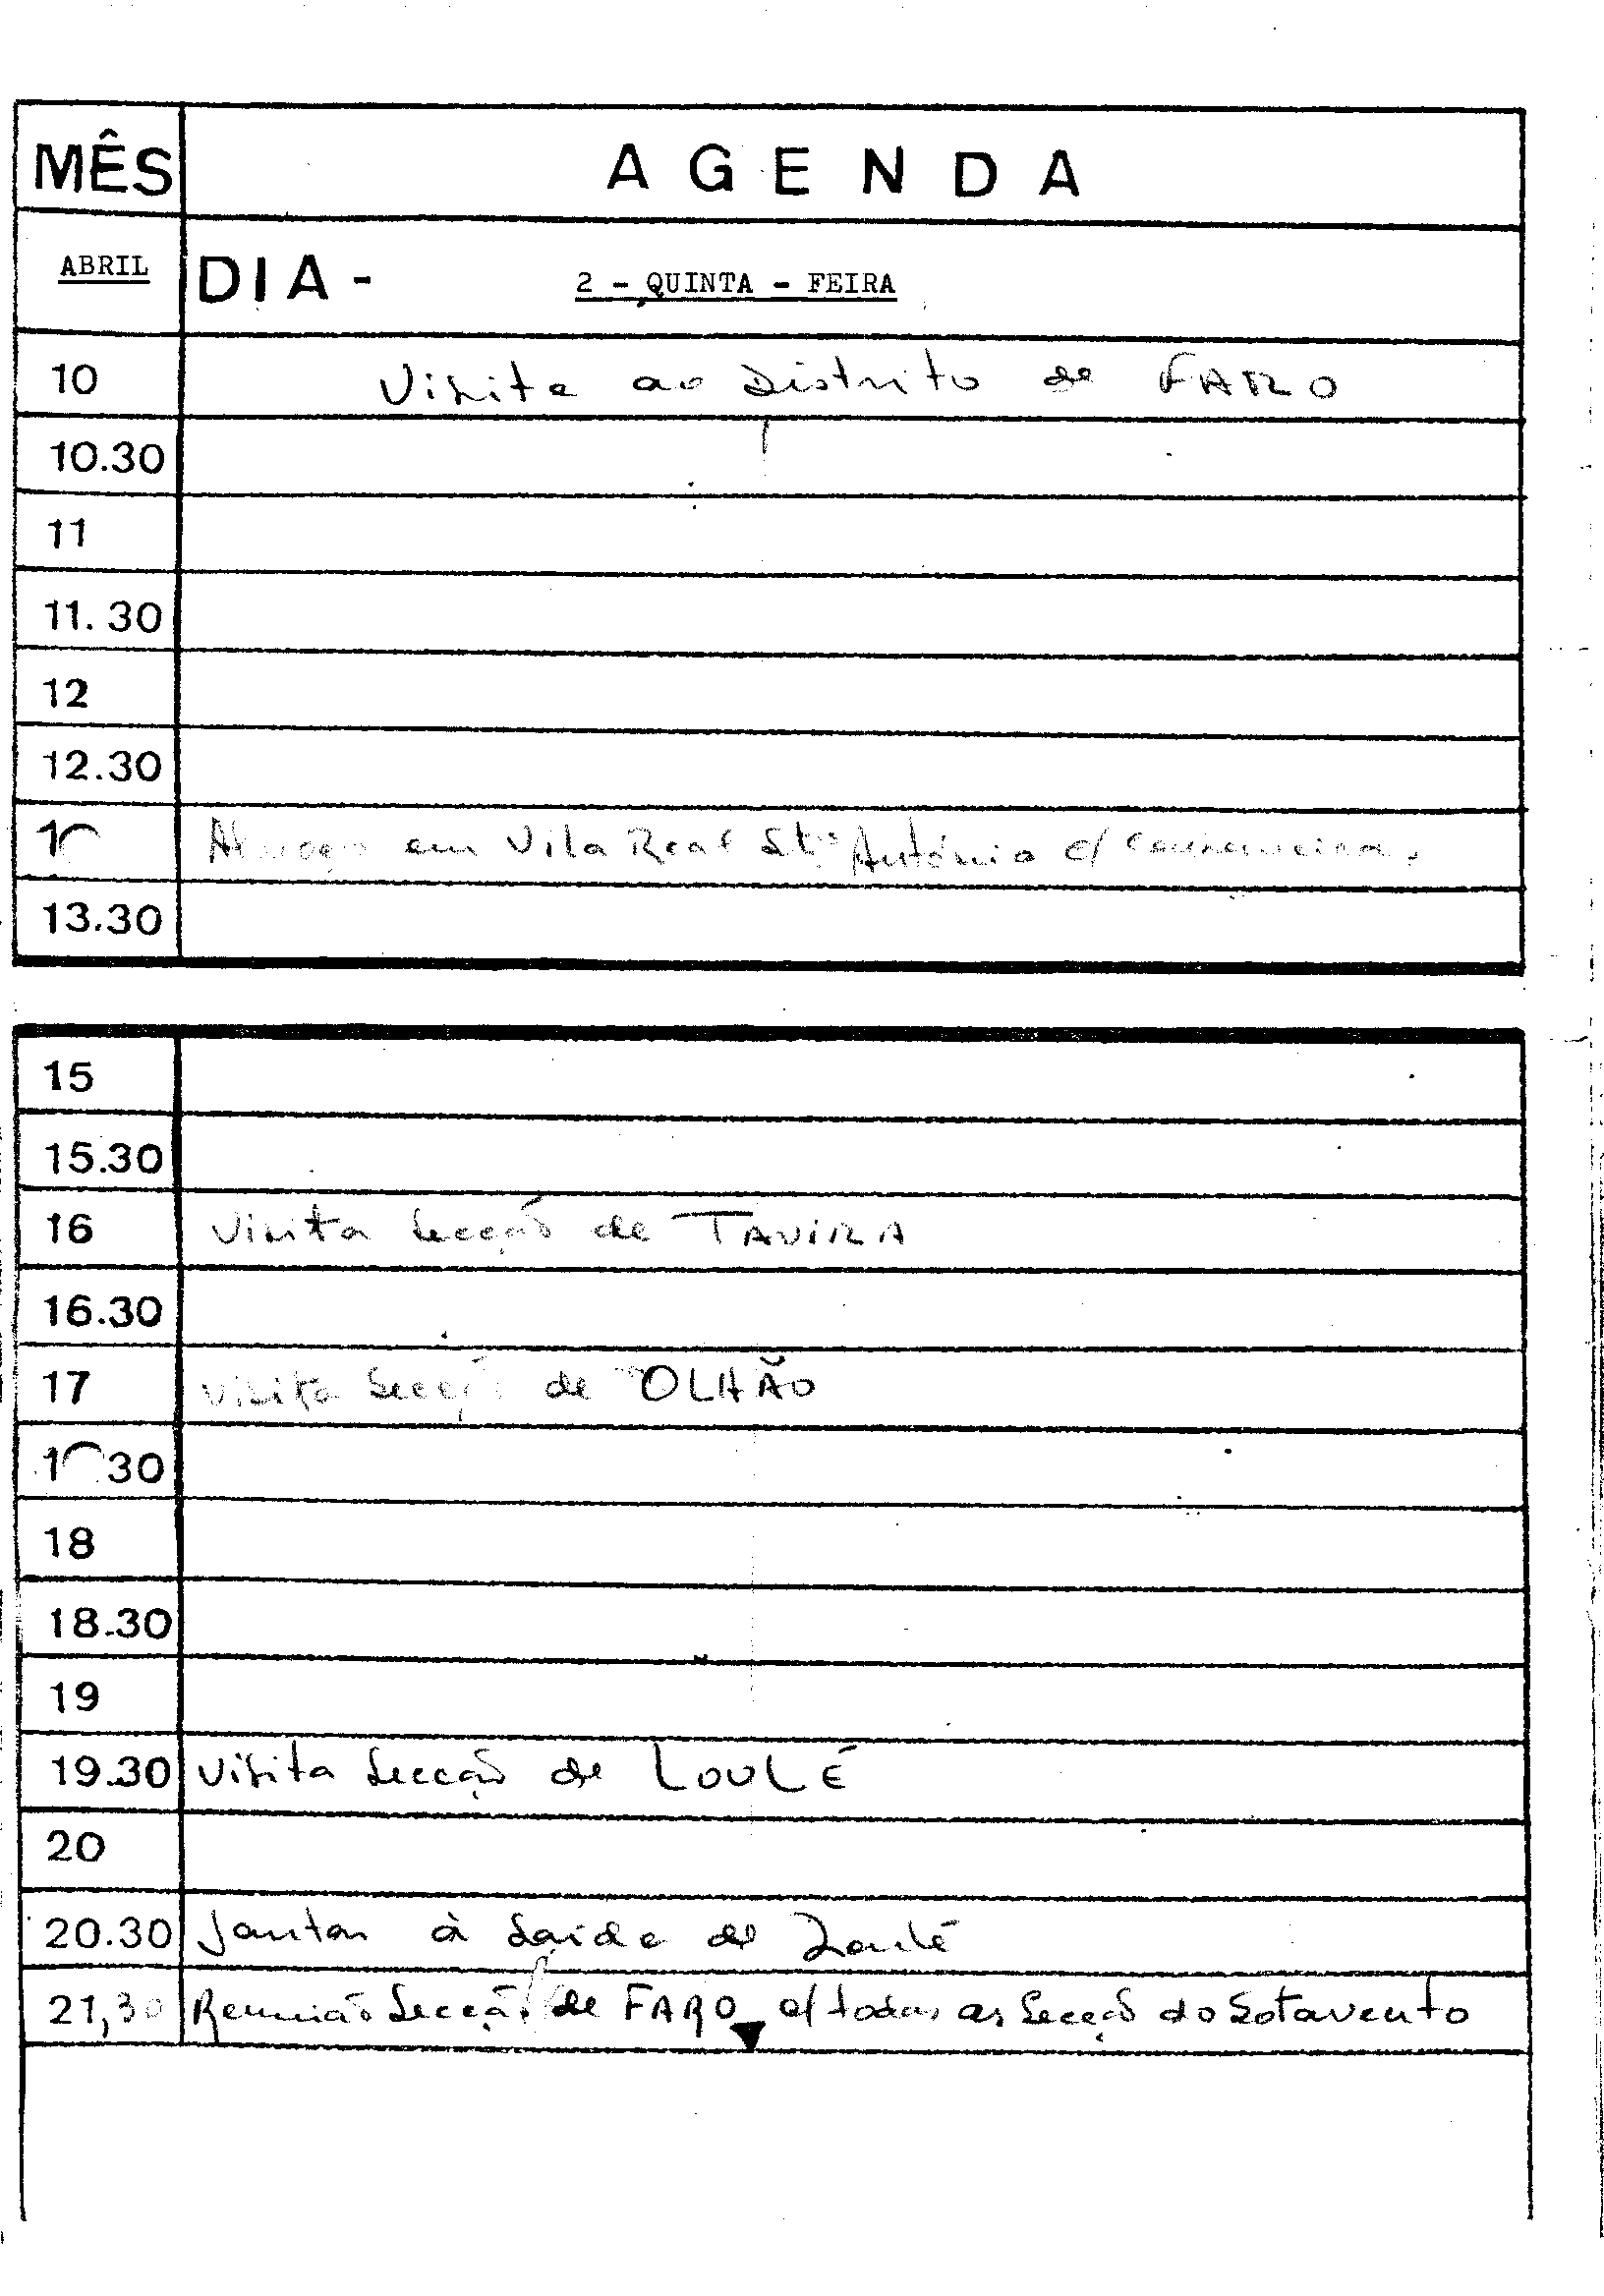 MÊS AGENDA
ABRIL DIA - 2 - QUINTA - FEIRA
10 Visita ao Distrito de FARO
10.30
11
11.30
12
12.30
1 Almoço em Vila Real Stº António c/
13.30
15
15.30
16 Visita Secção de TAVIRA
16.30
17 Visita Secção de OLHÃO
1 30
18
18.30
19
19.30 Visita Secção de LOULÉ
20
20.30 Jantar à Saída de Loulé
21,30 Reunião Secção de FARO c/ todas as Secção do Sotavento